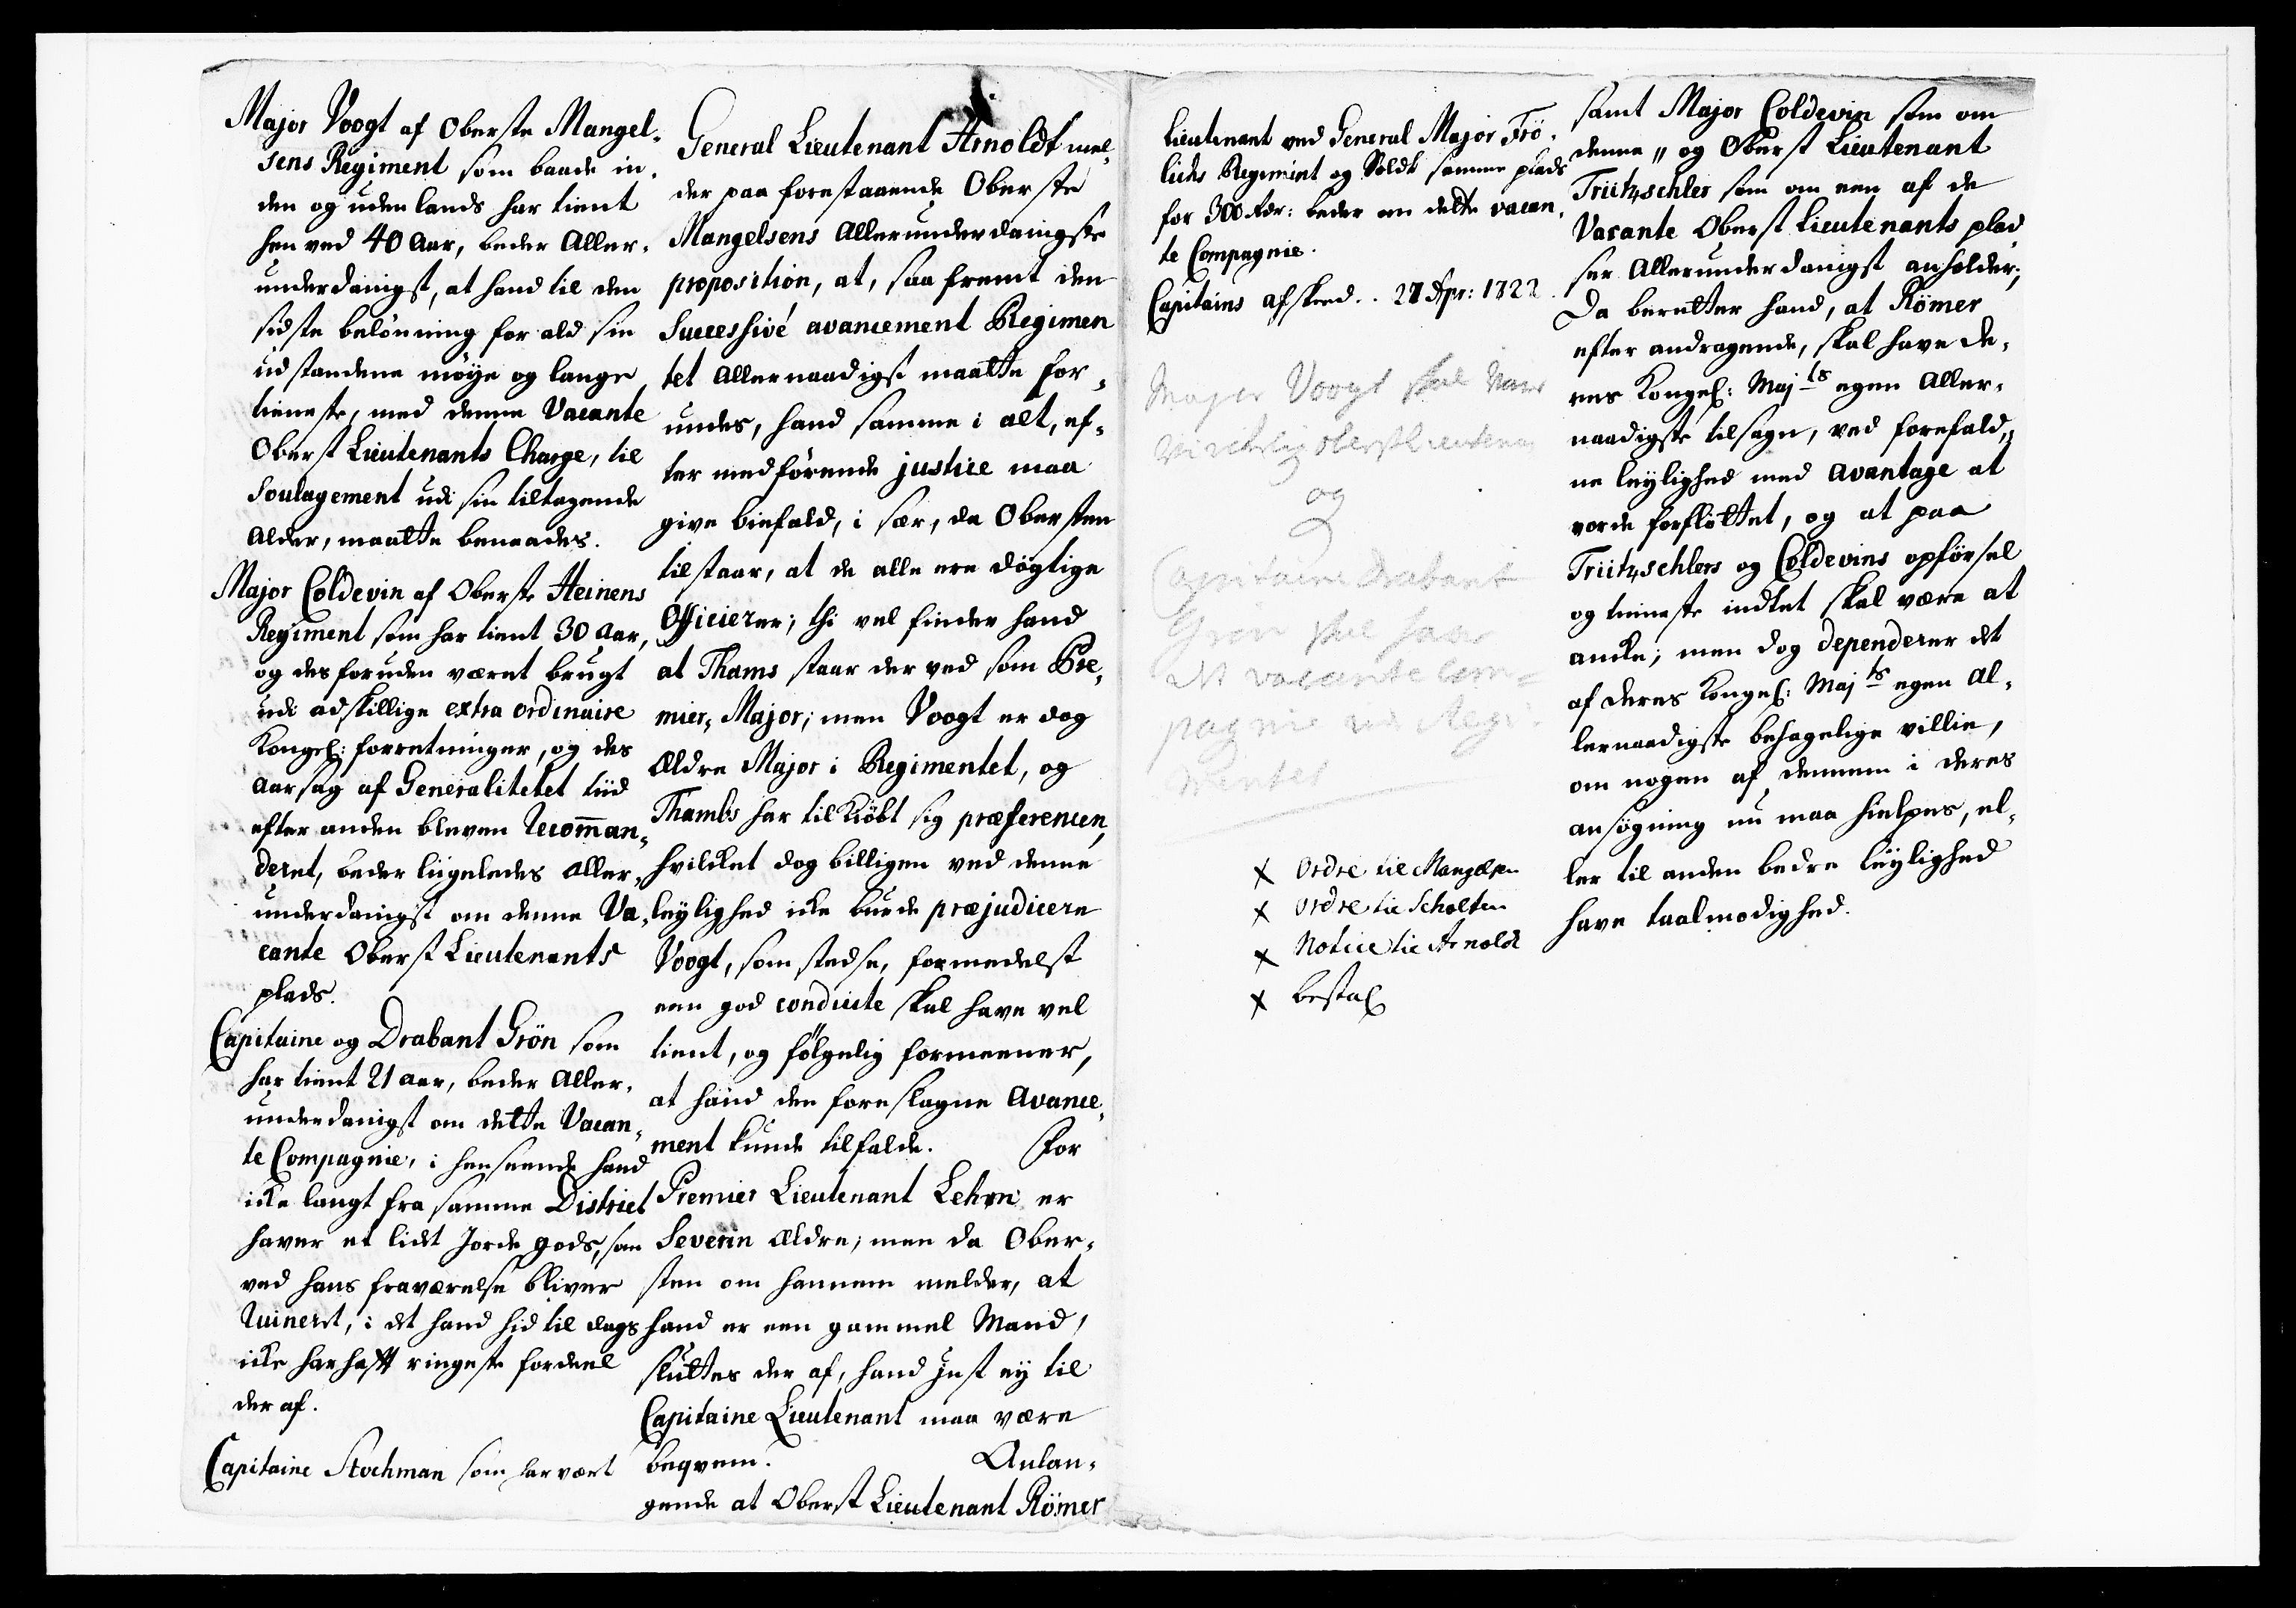 Major Voogt af Oberste Mangel-
sens Regiment som baade in-
den og uden lands har tient
hen ved 40 Aar, beder Aller-
underdanigst, at hand til den
sidste belönning for ald sin
udstandene möye og lange
tieneste, med denne Vacante
Oberst Lieutenants Charge, til
Soulagement udi sin tiltagende
Alder, maatte benaades.
Major Coldevin af Oberste Heinens
Regiment som har tient 30 Aar,
og desforuden været brugt
udi adskillige extra ordinaire
Kongel: forretninger, og des
aarsag af Generalitetet tiid
efter anden bleven Recomman-
deret, beder liigeledes Aller-
underdanigst om denne Va-
cante Oberst Lieutenants
plads.
Capitaine og Drabant Grön som
har tient 21 aar, beder Aller-
underdanigst om dette Vacan-
te Compagnie, i henseende hand
icke langt fra samme District
haver et lidt Jorde gods, som
ved hans fraværelse bliver
Ruineret, i det hand hid til dags
icke har hafft ringeste fordeel
der af.
Capitaine Stochman som har vært
General Lieutenant Arnoldt mel-
der paa forestaaende Oberste
Mangelsens Allerunderdanigste
proposition, at, saa fremt den
Successivé avancement Regimen
tet Allernaadigst maatte for-
undes, hand samme i alt, ef-
ter medförende justice maa
give biefald, i sær, da Obersten
tilstaar, at de alle ere dögtige
Officierer; thi vel finder hand
at Thams staar der ved som Pre-
mier-Major; men Voogt er dog
Ældre Major i Regimentet, og
Thambs har tilkiöbt sig præferencen,
hvilcket dog billigen ved denne
leylighed icke burde præjudicere
Voogt, som stedse, formedelst
een god conduite skal have vel
tient, og fölgelig formeener,
at hand den foreslagne Avance-
ment kunde tilfalde. For
Premier Lieutenant Lehrn er
Severin Ældre; men da Ober-
sten om hannem melder, at
hand er een gammel Mand,
sluttes der af, hand just ey til
Capitaine Lieutenant maa være
beqvem. Anlan-
gende at Oberst Lieutenant Römer
Lieutenant ved General Major Frö-
lichs Regemint og Soldt samme plads
for 300 Rdr: beder om dette vacan-
te Compagnie.
Capitains afskeed. 27 Apr: 1722
Major Voogt skal være
Virchelig oberstLieutenant
og
Capitaine Drabant
Grön skal have
dt vacante Com-
pagnie ved Regi-
mentet
x Ordre til Mangelsen
x Ordre til Scholten
x Notice til Arnoldt
x bestal
samt Major Coldevin som om
denne, og Oberst Lieutenant
Triitzschler som om een af de
Vacante Oberst Lieutenants plad
ser Allerunderdanigst anholder;
Da beretter hand, at Römer
efter andragende, skal have De-
res Kongel: Majts egen Aller-
naadigste tilsagn, ved forefald-
ne leylighed med avantage at
vorde forflöttet, og at paa
Triitzschlers og Coldevins opförsel
og tieneste indtet skal være at
ancke; men dog dependerer det
af Deres Kongel: Majts egen Al-
lernaadigste behagelige villie,
om nogen af dennem i deres
ansögning nu maa hielpes, el-
ler til anden bedre leylighed
have taalmodighed.